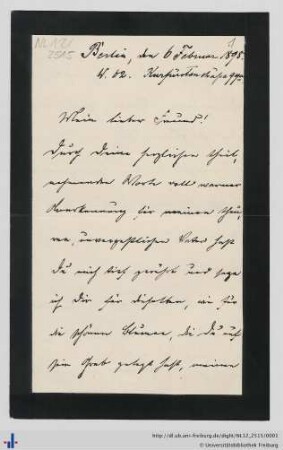 NL 12/
2515
1
Berlin, den 6 Februar 1895.
W. 62. Kurfürstenstraße
Mein lieber Freund!
Durch Deine herzlichen theil-
nehmenden Worte voll warmer
Anerkennung für meinen theu-
ren, unvergeßlichen Vater hast
Du mich tief gerührt und sage
ich Dir für dieselben, wie für
die schönen Blumen, die Du auf
sein Grab gelegt hast, meinen
http://dl.ub.uni-freiburg.de/diglit/NL12_2515/0001
© Universitätsbibliothek Freiburg